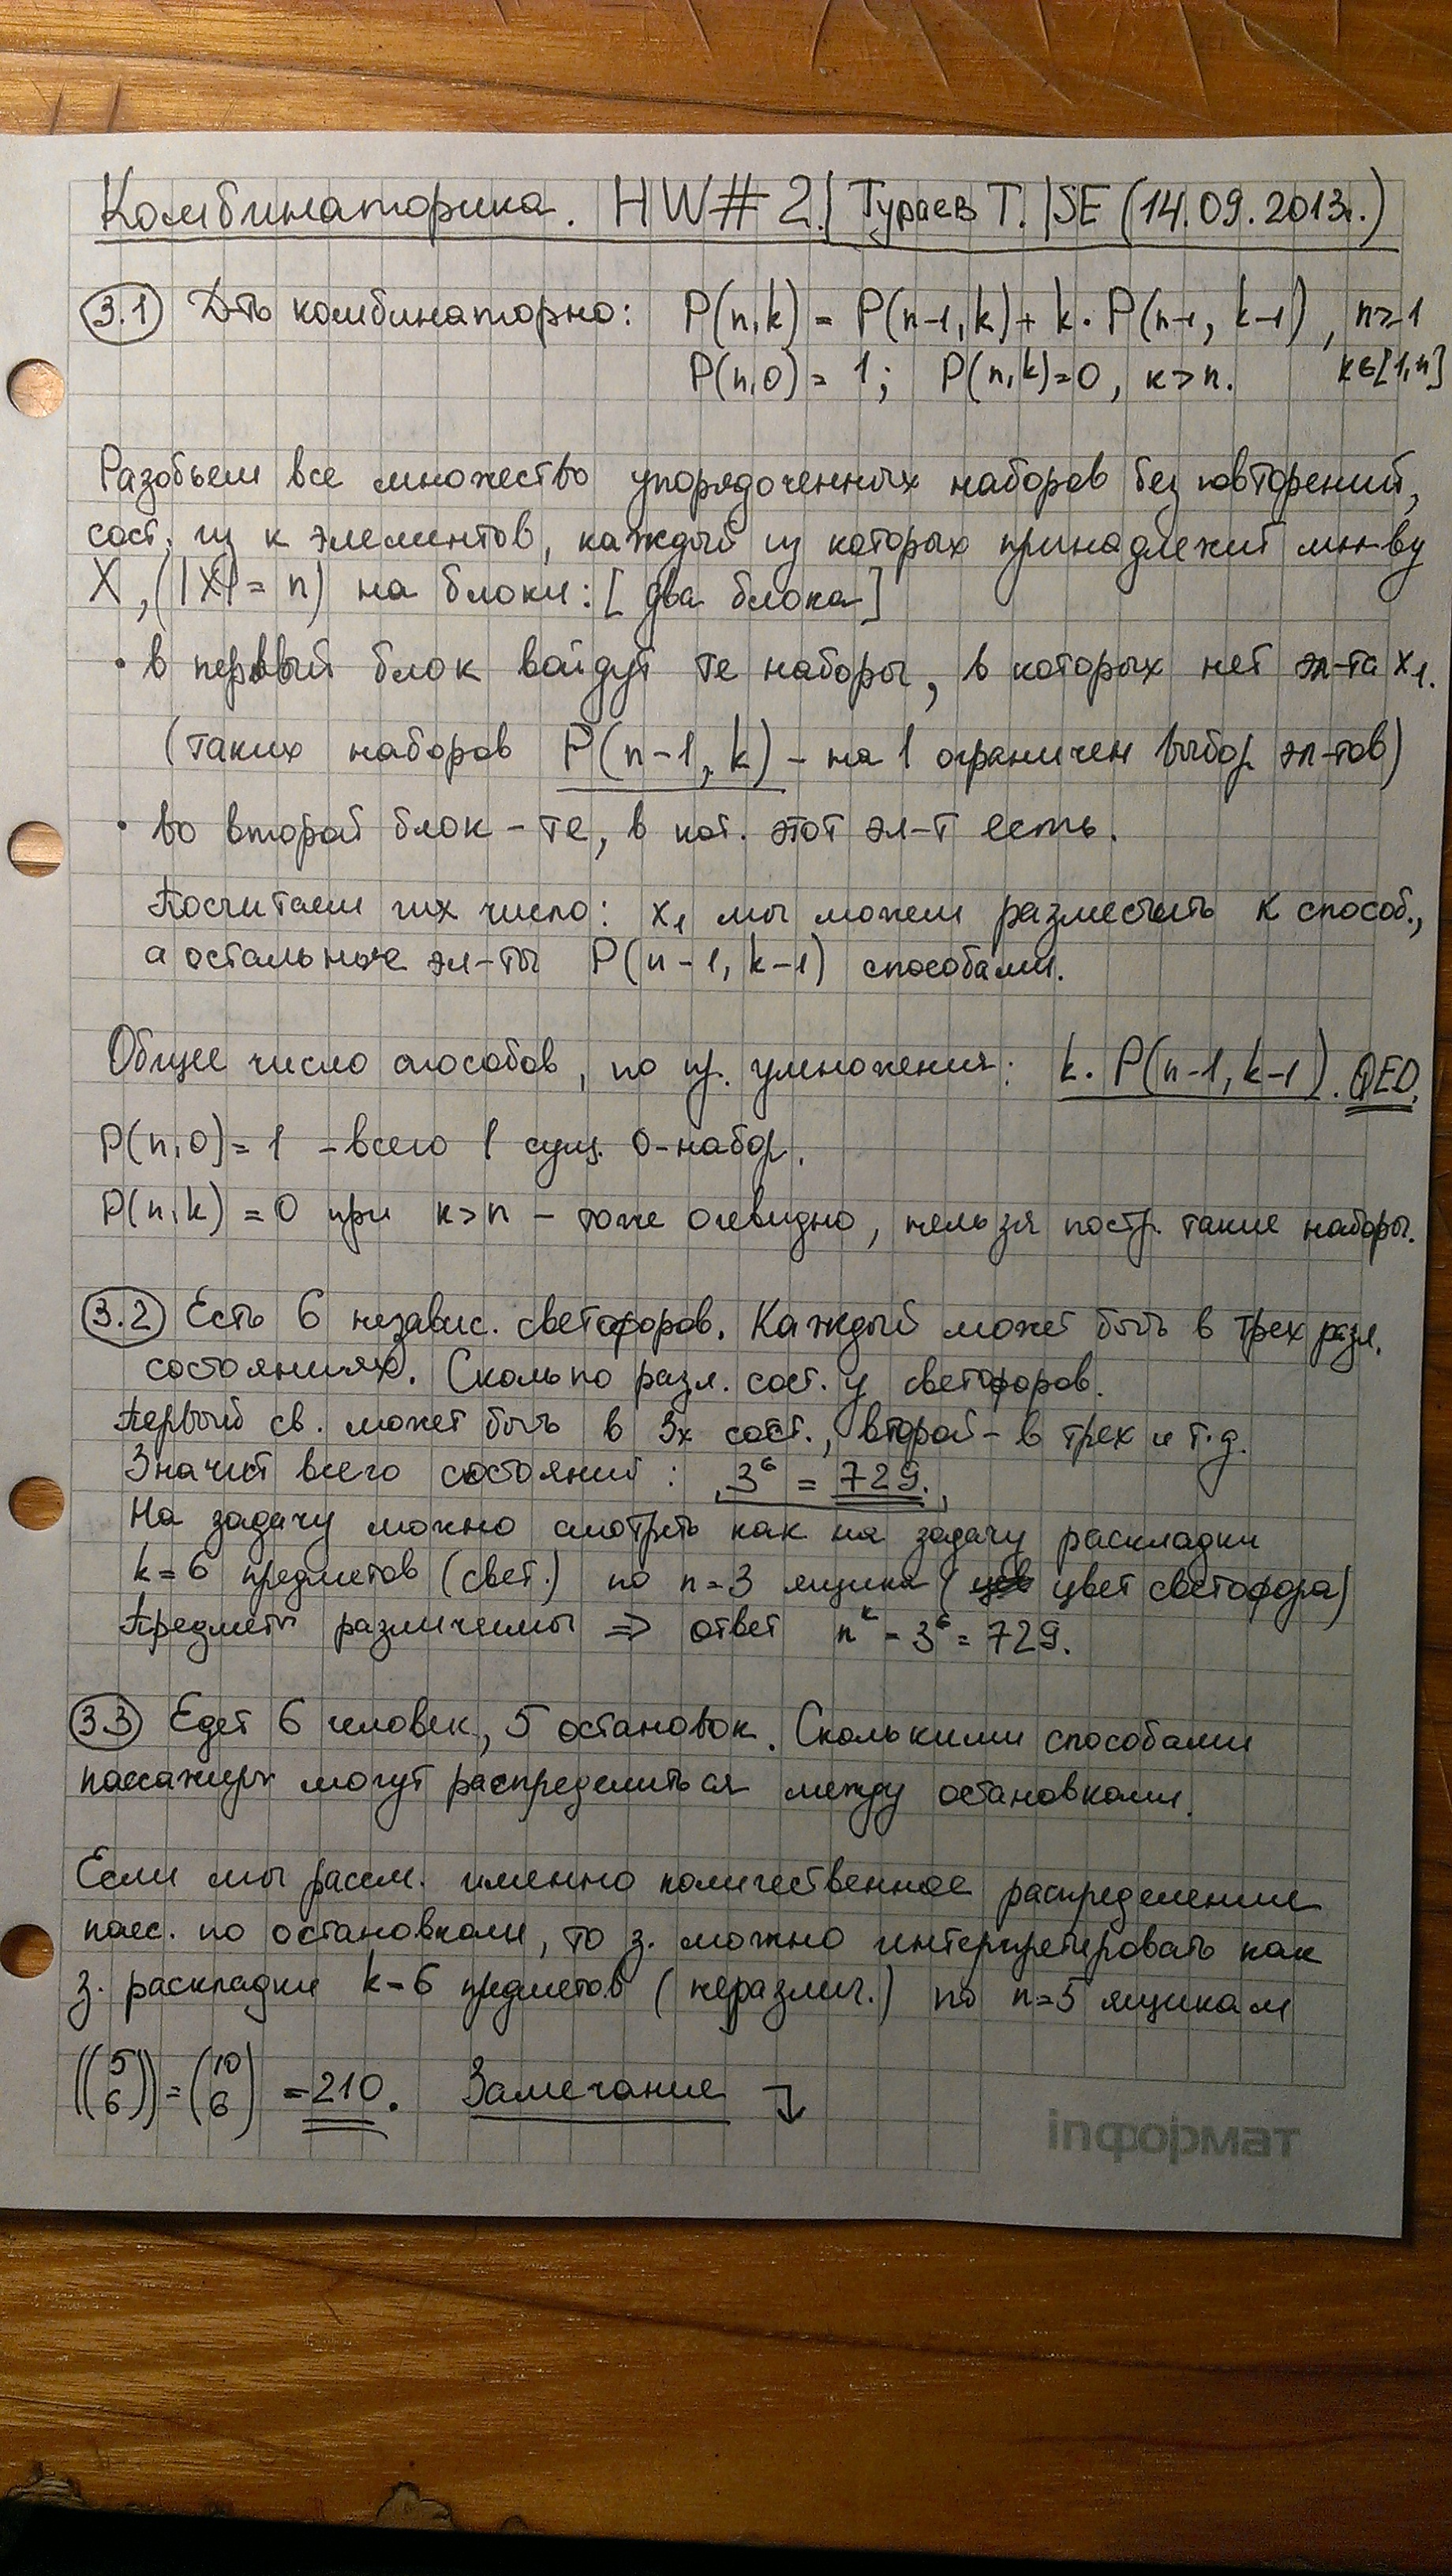 Комбинаторика. HW# 2. | Тураев Т. | SE (14.09.2013г.)
3.1 Д-ть комбинаторно: P(n,k) = P(n-1,k) + k · P(n-1, k-1), n≥1
P(n,0) = 1; P(n,k)=0, k>n. k∈[1,n]
Разобьем все множество упорядоченных наборов без повторений,
сост. из k элементов, каждый из которых принадлежит мн-ву
X, (|X| = n) на блоки: [два блока]
• в первый блок войдут те наборы, в которых нет эл-та x₁.
(таких наборов P(n-1, k) - на 1 ограничен выбор эл-тов)
• во второй блок - те, в кот. этот эл-т есть.
Посчитаем их число: x₁ мы можем разместить k способ.,
а остальные эл-ты P(n-1, k-1) способами.
Общее число способов, по пр. умножения: k · P(n-1, k-1). QED.
P(n,0) = 1 - всего 1 сущ. 0-набор.
P(n,k) = 0 при k>n - тоже очевидно, нельзя постр. такие наборы.
3.2 Есть 6 независ. светофоров. Каждый может быть в трех разл.
состояниях. Сколько разл. сост. у светофоров.
Первый св. может быть в 3х сост., второй - в трех и т.д.
Значит всего состояний: 3⁶ = 729.
На задачу можно смотреть как на задачу раскладки
k=6 предметов (свет.) по n=3 ящика (цвет светофора)
Предметы различимы ⇒ ответ nᵏ = 3⁶ = 729.
3.3 Едет 6 человек, 5 остановок. Сколькими способами
пассажиры могут распределиться между остановками.
Если мы рассм. именно количественное распределение
пасс. по остановкам, то з. можно интерпретировать как
з. раскладки k=6 предметов (неразлич.) по n=5 ящикам
((5 6)) = (10 6) = 210. Замечание ↴
inформат